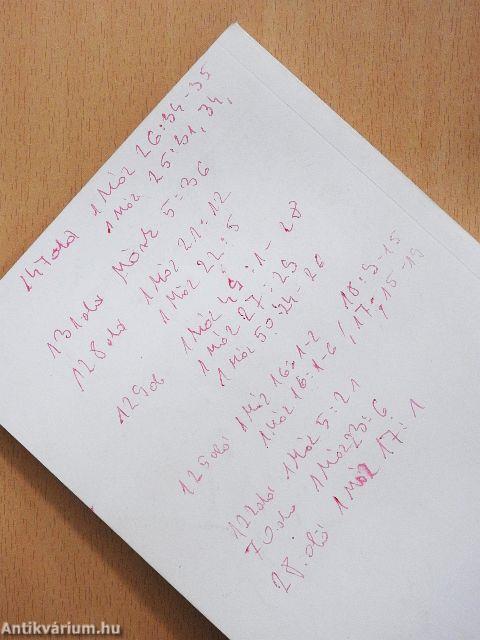 147 old 1 Móz 26:34-35
1 Móz 25:31, 34,
131 old Márk 5:36
128 old 1 Móz 21:12
1 Móz 22:5
129 ol 1 Móz 49:1-28
1 Móz 27:29
1 Móz 50:24-26
125 old 1 Móz 16:1-2
1 Móz 18:1-6 / 18:9-15
, 17:15-19
122 old 1 Móz 5:21
70. old 1 Móz 23:6
28. old 1 Móz 17:1
Antikvárium.hu